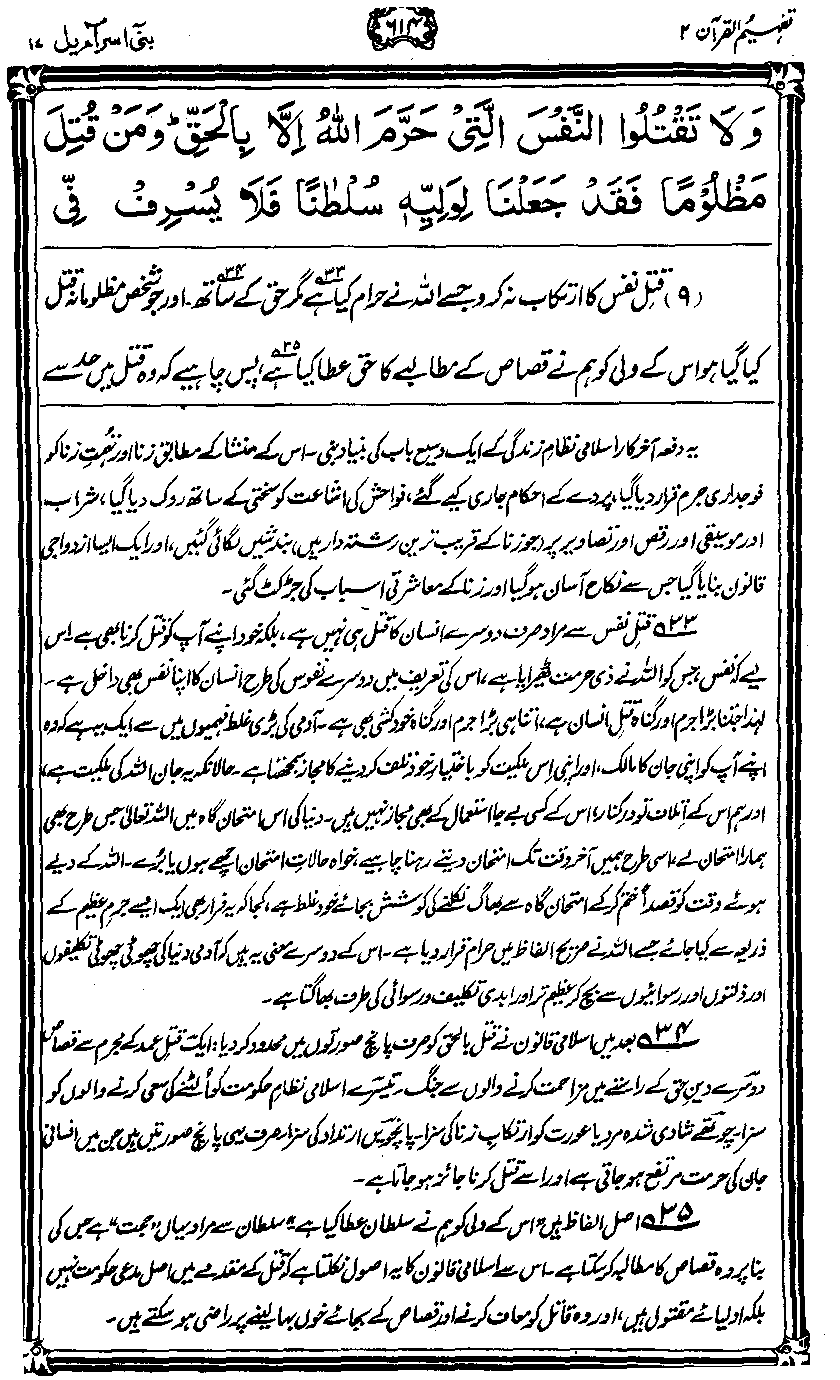 تفہیم القرآن ۲
۶۱۴
بنی اسرآءیل ۱۷
وَلَا تَقْتُلُوا النَّفْسَ الَّتِيْ حَرَّمَ اللّٰهُ اِلَّا بِالْحَقِّ ؕ وَمَنْ قُتِلَ
مَظْلُوْمًا فَقَدْ جَعَلْنَا لِوَلِيِّهٖ سُلْطٰنًا فَلَا يُسْرِفْ فِّي
(۹) قتلِ نفس کا ارتکاب نہ کرو جسے اللہ نے حرام کیا ہے۳۳ مگر حق کے ساتھ۳۴۔ اور جو شخص مظلومانہ قتل
کیا گیا ہو اس کے ولی کو ہم نے قصاص کے مطالبے کا حق عطا کیا ہے۳۵، پس چاہیے کہ وہ قتل میں حد سے
یہ دفعہ آخر کار اسلامی نظامِ زندگی کے ایک وسیع باب کی بنیاد بنی۔ اس کے منشا کے مطابق زنا اور تہمتِ زنا کو
فوجداری جرم قرار دیا گیا، پردے کے احکام جاری کیے گئے، فواحش کی اشاعت کو سختی کے ساتھ روک دیا گیا، شراب
اور موسیقی اور رقص اور تصاویر پر (جو زنا کے قریب ترین رشتہ دار ہیں) بندشیں لگائی گئیں، اور ایک ایسا ازدواجی
قانون بنایا گیا جس سے نکاح آسان ہو گیا اور زنا کے معاشرتی اسباب کی جڑ کٹ گئی۔
۳۳ قتلِ نفس سے مراد صرف دوسرے انسان کا قتل ہی نہیں ہے، بلکہ خود اپنے آپ کو قتل کرنا بھی ہے۔ اس
لیے کہ نفس، جس کو اللہ نے ذی حرمت ٹھیرایا ہے، اس کی تعریف میں دوسرے نفوس کی طرح انسان کا اپنا نفس بھی داخل ہے۔
لہٰذا جتنا بڑا جرم اور گناہ قتلِ انسان ہے، اتنا ہی بڑا جرم اور گناہ خودکشی بھی ہے۔ آدمی کی بڑی غلط فہمیوں میں سے ایک یہ ہے کہ وہ
اپنے آپ کو اپنی جان کا مالک، اور اپنی اس ملکیت کو باختیارِ خود تلف کر دینے کا مجاز سمجھتا ہے۔ حالانکہ یہ جان اللہ کی ملکیت ہے،
اور ہم اس کے اتلاف تو درکنار، اس کے کسی بے جا استعمال کے بھی مجاز نہیں ہیں۔ دنیا کی اس امتحان گاہ میں اللہ تعالیٰ جس طرح بھی
ہمارا امتحان لے، اسی طرح ہمیں آخر وقت تک امتحان دیتے رہنا چاہیے، خواہ حالاتِ امتحان اچھے ہوں یا بُرے۔ اللہ کے دیے
ہوئے وقت کو قصداً ختم کر کے امتحان گاہ سے بھاگ نکلنے کی کوشش بجائے خود غلط ہے، کجا کہ یہ فرار بھی ایک ایسے جرمِ عظیم کے
ذریعہ سے کیا جائے جسے اللہ نے صریح الفاظ میں حرام قرار دیا ہے۔ اس کے دوسرے معنی یہ ہیں کہ آدمی دنیا کی چھوٹی چھوٹی تکلیفوں
اور ذلتوں اور رسوائیوں سے بچ کر عظیم تر اور ابدی تکلیف و رسوائی کی طرف بھاگتا ہے۔
۳۴ بعد میں اسلامی قانون نے قتل بالحق کو صرف پانچ صورتوں میں محدود کر دیا: ایک قتلِ عمد کے مجرم سے قصاص
دوسرے دینِ حق کے راستے میں مزاحمت کرنے والوں سے جنگ۔ تیسرے اسلامی نظامِ حکومت کو اُلٹنے کی سعی کرنے والوں کو
سزا۔ چوتھے شادی شدہ مرد یا عورت کو ارتکابِ زنا کی سزا۔ پانچویں ارتداد کی سزا۔ صرف یہی پانچ صورتیں ہیں جن میں انسانی
جان کی حرمت مرتفع ہو جاتی ہے اور اسے قتل کرنا جائز ہو جاتا ہے۔
۳۵ اصل الفاظ ہیں "اس کے ولی کو ہم نے سلطان عطا کیا ہے"۔ سلطان سے مراد یہاں "حجت" ہے جس کی
بنا پر وہ قصاص کا مطالبہ کر سکتا ہے۔ اس سے اسلامی قانون کا یہ اصول نکلتا ہے کہ قتل کے مقدمے میں اصل مدعی حکومت نہیں
بلکہ اولیائے مقتول ہیں، اور وہ قاتل کو معاف کرنے اور قصاص کے بجائے خوں بہا لینے پر راضی ہو سکتے ہیں۔